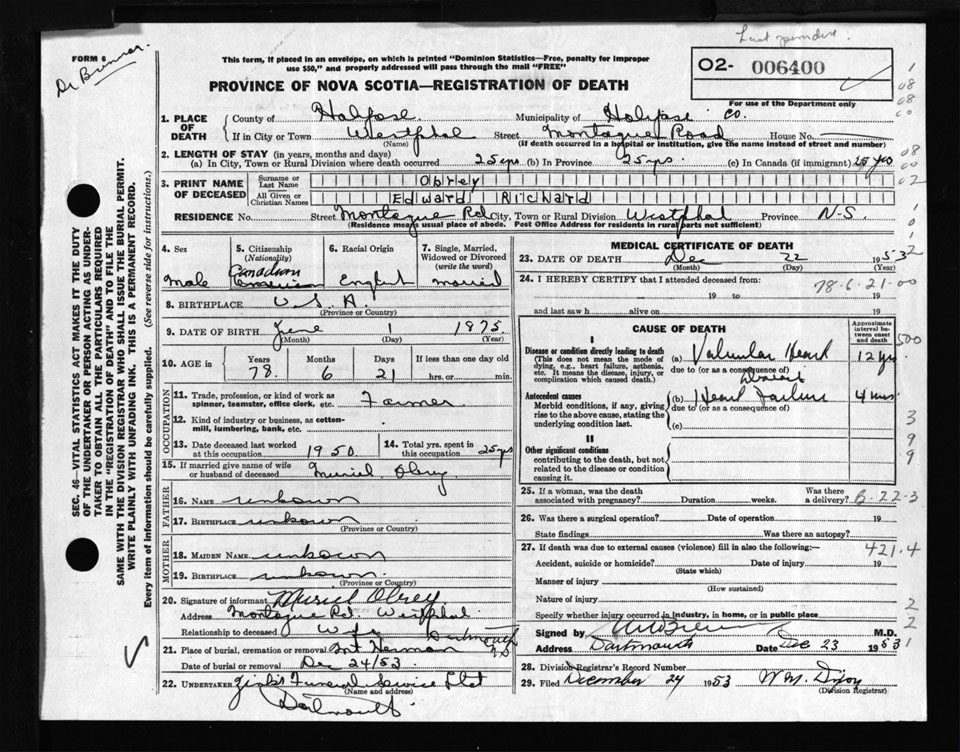 Last number.
FORM 6
Dr Brennan.
This form, if placed in an envelope, on which is printed "Dominion Statistics—Free, penalty for improper use $50," and properly addressed will pass through the mail "FREE"
O2- 006400
PROVINCE OF NOVA SCOTIA—REGISTRATION OF DEATH
For use of the Department only
1. PLACE OF DEATH County of Halifax Municipality of Halifax Co.
If in City or Town Westphal Street Montague Road House No.
(Name) (If death occurred in a hospital or institution, give the name instead of street and number)
2. LENGTH OF STAY (in years, months and days)
(a) In City, Town or Rural Division where death occurred 25 yrs (b) In Province 25 yrs. (c) In Canada (if immigrant) 25 yrs
3. PRINT NAME OF DECEASED Surname or Last Name Obrey
All Given or Christian Names Edward Richard
RESIDENCE No. Street Montague Rd City, Town or Rural Division Westphal Province N-S.
(Residence means usual place of abode. Post Office Address for residents in rural parts not sufficient)
4. Sex Male
5. Citizenship (Nationality) Canadian
6. Racial Origin English
7. Single, Married, Widowed or Divorced (write the word) married
8. BIRTHPLACE U.S.A.
(Province or Country)
9. DATE OF BIRTH June 1 1875
(Month) (Day) (Year)
10. AGE in Years 78 Months 6 Days 21 If less than one day old hrs. or min.
OCCUPATION
11. Trade, profession, or kind of work as spinner, teamster, office clerk, etc. Farmer
12. Kind of industry or business, as cotton-mill, lumbering, bank, etc.
13. Date deceased last worked at this occupation 1950
14. Total yrs. spent in this occupation 25 yrs
15. If married give name of wife or husband of deceased Muriel Obrey
FATHER
16. NAME unknown
17. BIRTHPLACE unknown
(Province or Country)
MOTHER
18. MAIDEN NAME unknown
19. BIRTHPLACE unknown
(Province or Country)
20. Signature of informant Muriel Obrey
Address Montague Rd. Westphal
Relationship to deceased Wife
21. Place of burial, cremation or removal Mt Herman Dartmouth NS
Date of burial or removal Dec 24/53
22. UNDERTAKER Funeral Service Ltd
(Name and address)
Dartmouth
MEDICAL CERTIFICATE OF DEATH
23. DATE OF DEATH Dec 22 1953
(Month) (Day) (Year)
24. I HEREBY CERTIFY that I attended deceased from:
78-6-21-00
19 to 19
and last saw h alive on 19
CAUSE OF DEATH
Approximate interval between onset and death
I
Disease or condition directly leading to death (a) Valvular Heart 12 yrs
(This does not mean the mode of dying, e.g., heart failure, asthenia, etc. It means the disease, injury, or complication which caused death.)
due to (or as a consequence of) Disease
Antecedent causes (b) Heart Failure 4 mos
Morbid conditions, if any, giving rise to the above cause, stating the underlying condition last.
due to (or as a consequence of)
(c)
II
Other significant conditions contributing to the death, but not related to the disease or condition causing it.
25. If a woman, was the death associated with pregnancy? Duration weeks. Was there a delivery?
B-22-3
26. Was there a surgical operation? Date of operation 19
State findings Was there an autopsy?
27. If death was due to external causes (violence) fill in also the following:—
421.4
Accident, suicide or homicide? Date of injury 19
(State which)
Manner of injury
(How sustained)
Nature of injury
Specify whether injury occurred in industry, in home, or in public place
Signed by M.D.
Address Dartmouth Date Dec 23 1953
28. Division Registrar's Record Number
29. Filed December 24 1953 W M Dixon
(Division Registrar)
SEC. 46—VITAL STATISTICS ACT MAKES IT THE DUTY
OF THE UNDERTAKER OR PERSON ACTING AS UNDER-
TAKER TO OBTAIN ALL THE PARTICULARS REQUIRED
IN THE "REGISTRATION OF DEATH" AND TO FILE THE
SAME WITH THE DIVISION REGISTRAR WHO SHALL ISSUE THE BURIAL PERMIT.
WRITE PLAINLY WITH UNFADING INK. THIS IS A PERMANENT RECORD.
Every item of information should be carefully supplied. (See reverse side for instructions.)